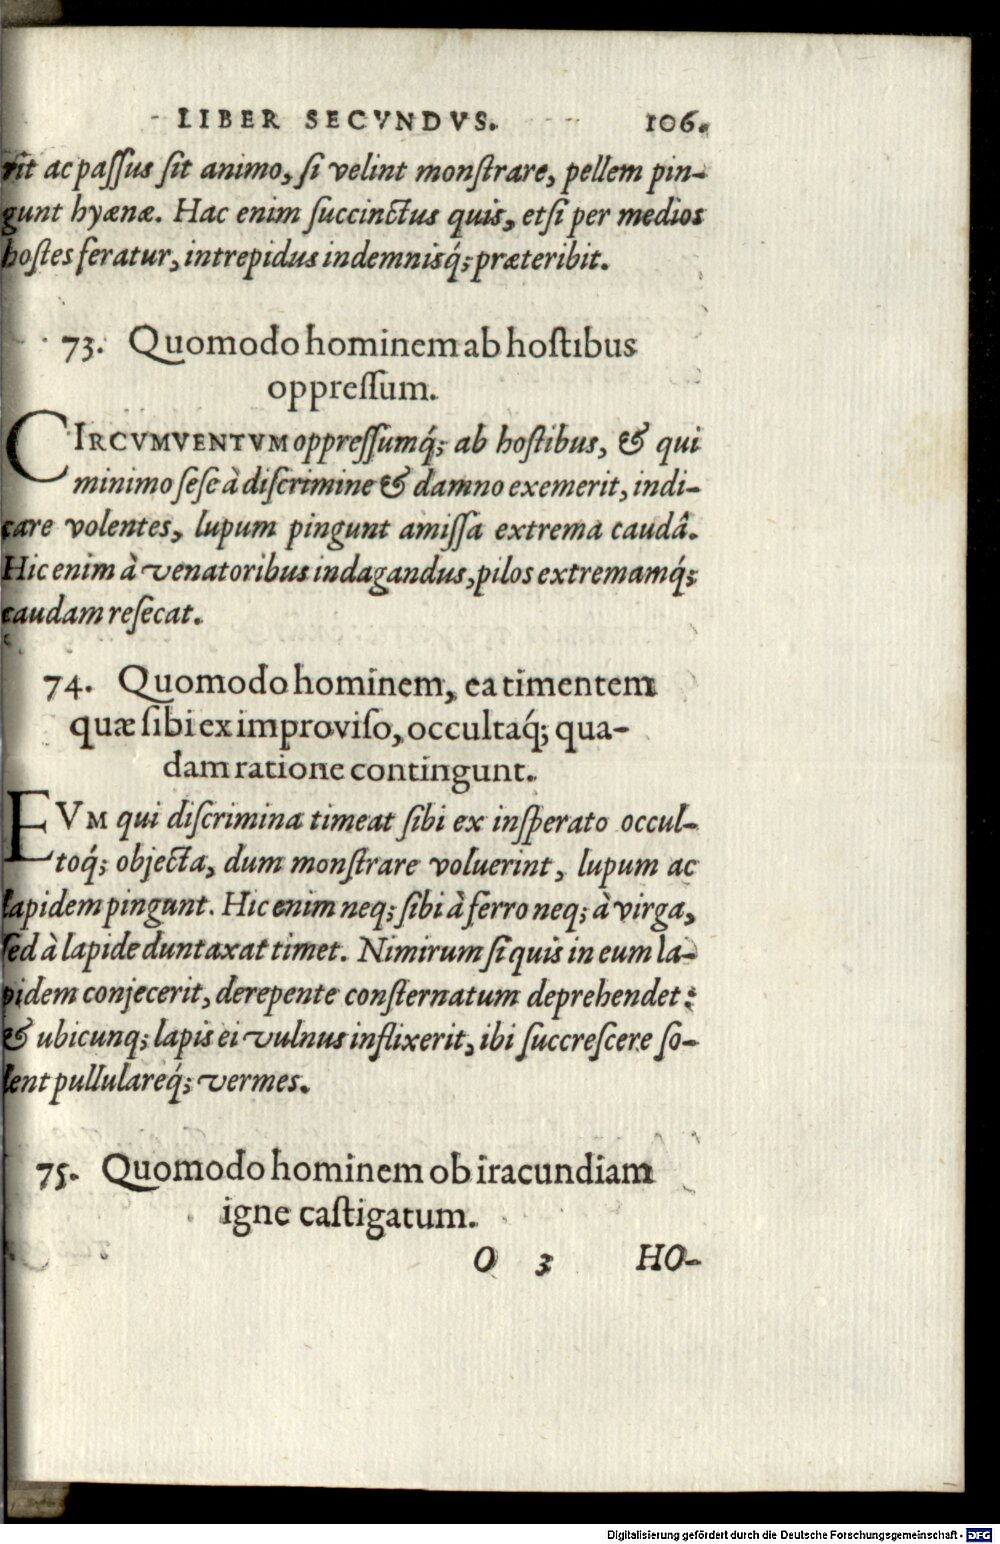 LIBER SECVNDVS. 106.
rit ac paſſus ſit animo, ſi velint monſtrare, pellem pin-
gunt hyænæ. Hac enim ſuccinctus quis, etſi per medios
hoſtes feratur, intrepidus indemnisq́; præteribit.
73. Quomodo hominem ab hoſtibus
oppreſſum.
CIRCVMVENTVM oppreſſumq́; ab hoſtibus, & qui
minimo ſeſe à diſcrimine & damno exemerit, indi-
care volentes, lupum pingunt amiſſa extrema caudâ.
Hic enim à venatoribus indagandus, pilos extremamq́;
caudam reſecat.
74. Quomodo hominem, ea timentem
quæ ſibi ex improviſo, occultaq́; qua-
dam ratione contingunt.
EVM qui diſcrimina timeat ſibi ex inſperato occul-
toq́; objecta, dum monſtrare voluerint, lupum ac
lapidem pingunt. Hic enim neq; ſibi à ferro neq; à virga,
ſed à lapide duntaxat timet. Nimirum ſi quis in eum la-
pidem conjecerit, derepente conſternatum deprehendet:
& ubicunq; lapis ei vulnus inflixerit, ibi ſuccreſcere ſo-
lent pullulareq́; vermes.
75. Quomodo hominem ob iracundiam
igne caſtigatum.
O 3 HO-
Digitalisierung gefördert durch die Deutsche Forschungsgemeinschaft - DFG